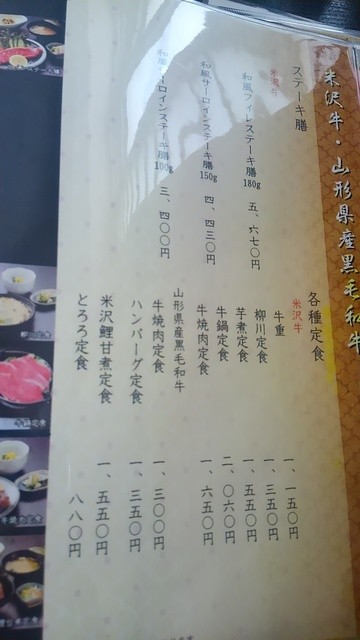 米沢牛・山形県産黒毛和牛
ステーキ膳
米沢牛
和風フィレステーキ膳 180g 五、六七〇円
和風サーロインステーキ膳 150g 四、四三〇円
和風サーロインステーキ膳 100g 三、四〇〇円
各種定食
米沢牛
牛重 一、一五〇円
柳川定食 一、三五〇円
芋煮定食 一、五五〇円
牛鍋定食 二、〇六〇円
牛焼肉定食 一、六五〇円
山形県産黒毛和牛
牛焼肉定食 一、三〇〇円
ハンバーグ定食 一、三五〇円
米沢鯉甘煮定食 一、五五〇円
とろろ定食 八八〇円